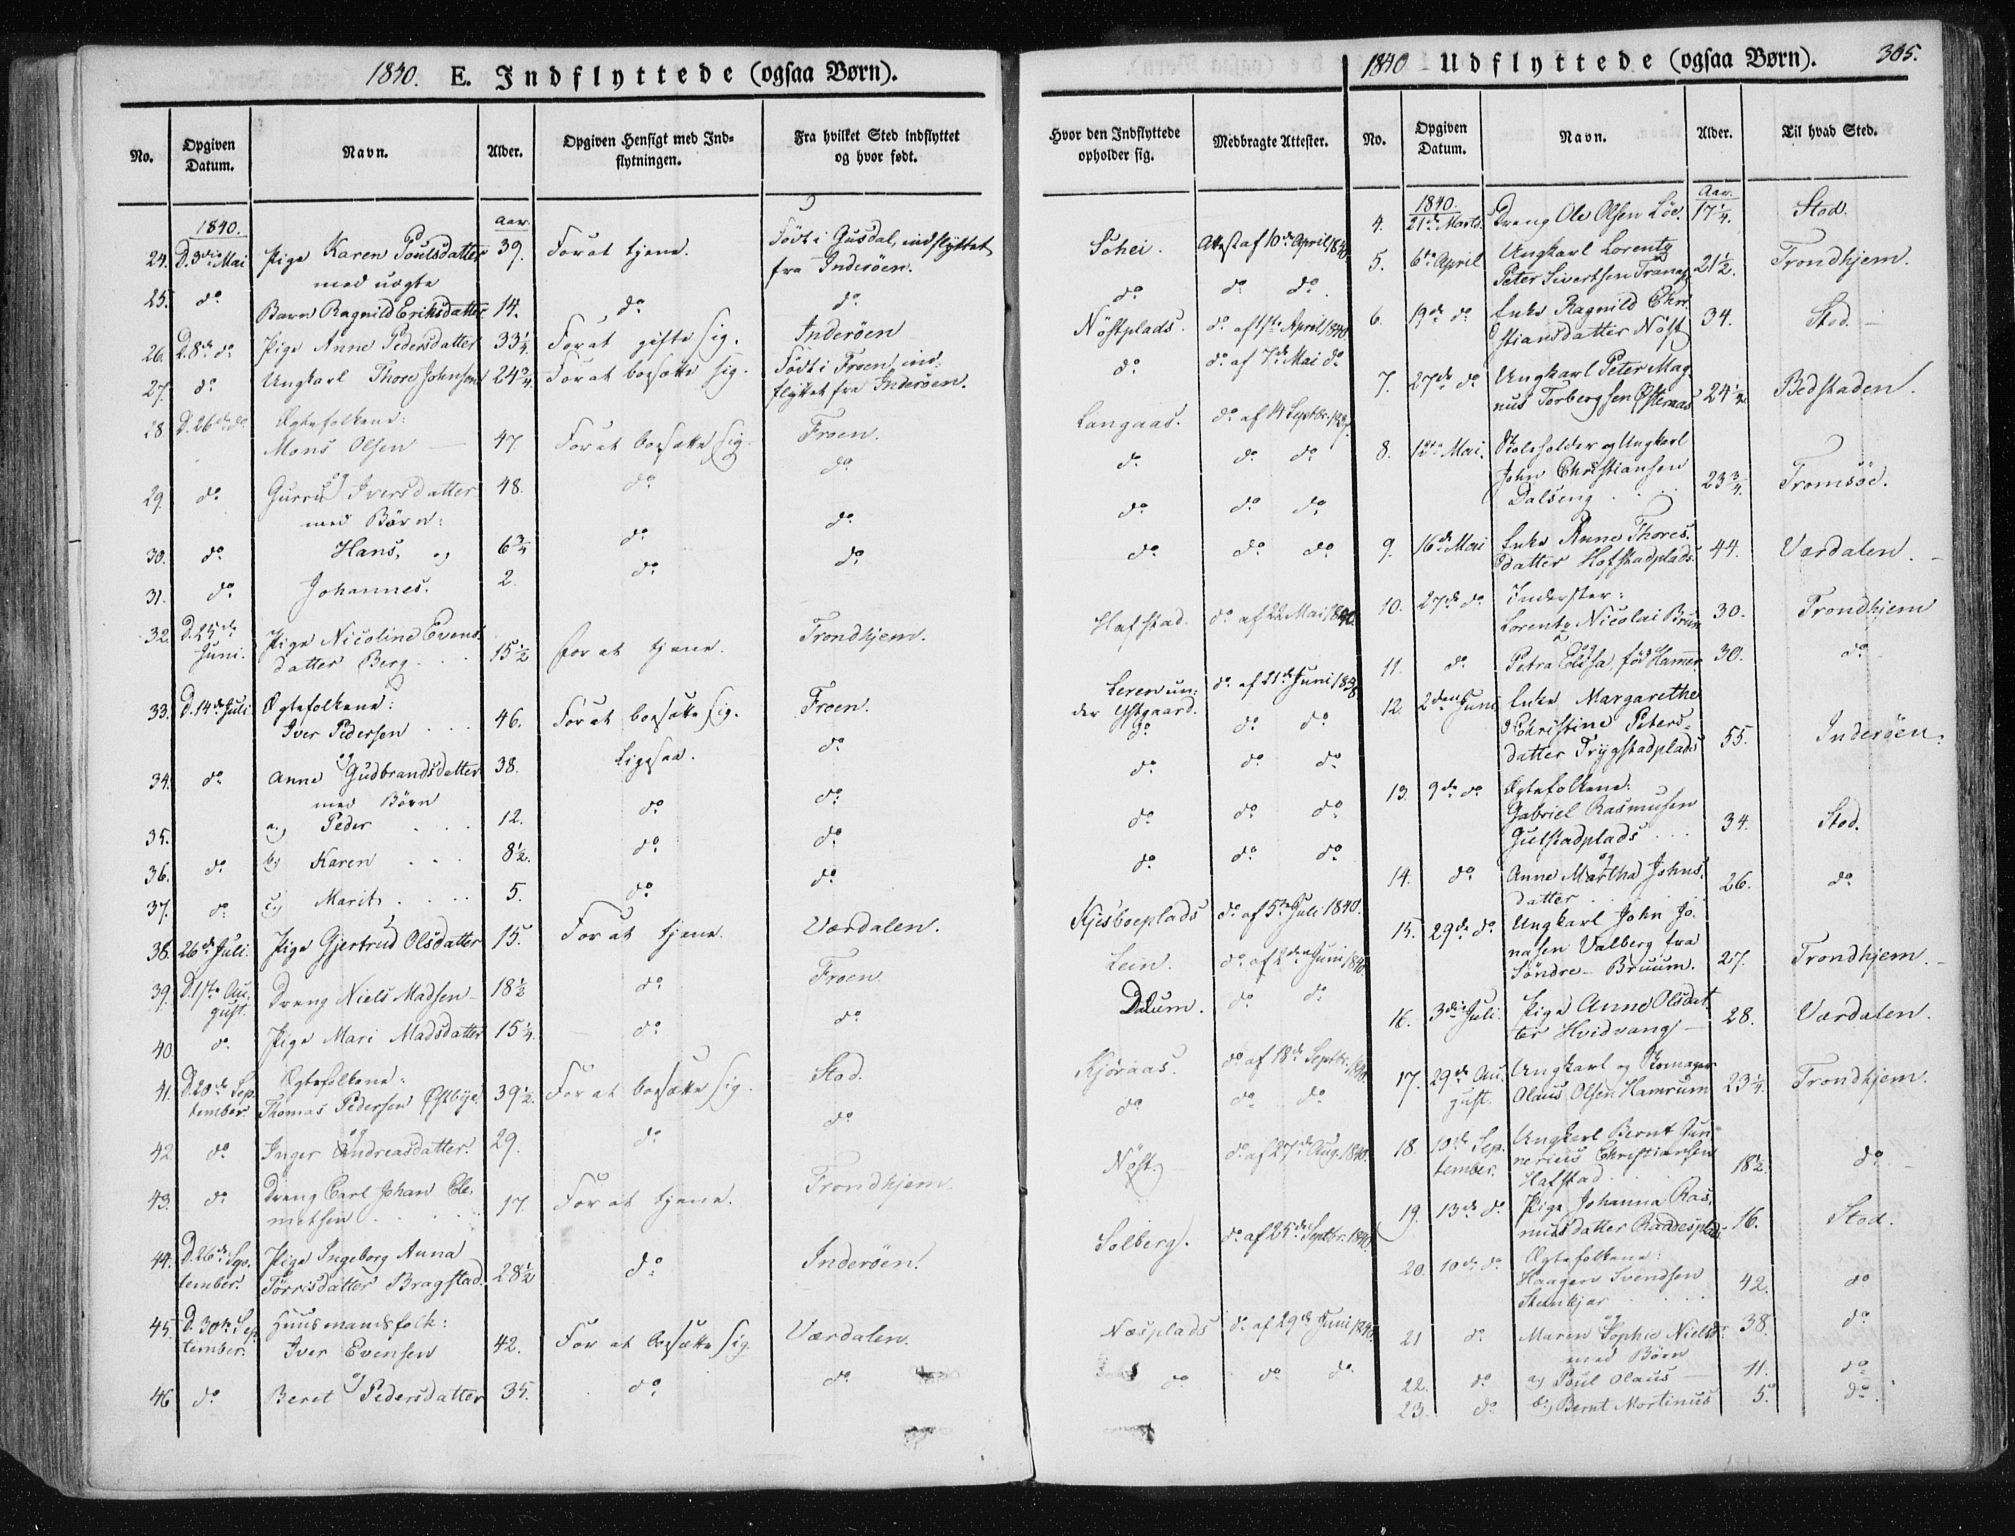 1840. E. Indflyttede (ogsaa Børn).
No. Opgiven Datum. Navn. Alder. Opgiven Hensigt med Indflytningen. Fra hvilket Sted indflyttet og hvor født.
1840. Aar.
24. D. 3die Mai Pige Karen Poulsdatter 39. For at tjene. Født i Gusdal, indflyttet
med uægte fra Inderöen.
25. do Barn Ragnild Eriksdatter 14. do do
26. D. 8de do Pige Anne Pedersdatter 33 1/4 For at gifte sig. Inderöen
27. do Ungkarl Thore Johnsen 24 3/4 For at bosætte sig. Født i Froen, ind-
flyttet fra Inderöen.
28. D. 26de do Ægtefolkene:
Mons Olsen 47 For at bosætte sig. Froen.
og
29. do Gurru Iversdatter 48. do do
med Börn:
30. do Hans, og 6 3/4 do do
31. do Johannes. 2. do do
32. D. 25de Juni. Pige Nicoline Evens-
datter Berg . . . 15 1/2 for at tjene. Trondhjem.
33. D. 14de Juli Ægtefolkene:
Iver Pedersen . . . 46. For at bosætte sig. Froen.
og
34. do Anne Gudbrandsdatter 38. Ligesaa. do
med Börn
35. a.) Peder . . . 12. do do
36. do b) Karen . . . 8 1/2. do do
37. do c.) Marit . . . . 5. do do
38. 26de Juli. Pige Gjertrud Olsdatter 15. For at tjene Værdalen.
39. D. 1ste August. Dreng Niels Madsen 18 1/2 do Froen
40. do Pige Mari Madsdatter 15 1/4. do do
41. D. 20de September. Ægtefolkene:
Thomas Pedersen Østbye 39 1/2. For at bosætte sig. Stod.
og
42. do Inger Andreasdatter. 29. do do
43. do Dreng Carl Johan Cle-
metsen . . . . . 17. For at tjene. Trondhjem
44. D. 26de September. Pige Ingeborg Anna
Torrisdatter Bragstad. 28 1/2 do Inderöen.
45. D. 30te September. Huusmandsfolk:
Iver Evensen 42. For at bosætte sig Værdalen.
og
46 do Beret Pedersdatter 35. do do
Hvor den Indflyttede opholder sig. Medbragte Attester.
Sohei. Attest af 10de April 1840.
do do do.
Nöstplads. do af 1ste April 1840
do do af 7de Mai do
Langaas. do af 14 Septbr. 1839.
do do do
do do do
do do do
Hafstad. do af 22 Mai 1840.
Leren un- do af 21de Juni 1838
der Ystgaard.
do do do
do do do
do do do
do do do
Kjesboeplads do af 5te Juli 1840.
Lein. do af 2den Juni 1840
Dalum. do do
Kjöraas. do af 18de Septbr. 1840.
do do do
Nöst do af 27de Aug. 1840.
Solberg. do af 25de Septbr. 1840.
Næsplads do af 29de Juni 1840.
do do do
1840 Udflyttede (ogsaa Børn). 305.
No. Opgiven Datum. Navn. Alder. Til hvad Sted.
1840. Aar.
4. 21de Marts Dreng Ole Olsen Löe. 17 1/4. Stod.
5. 6te April Ungkarl Lorentz
Peter Sivertsen Tranaas 21 1/2. Trondhjem.
6. 19de do Enke Ragnild Chri-
stiansdatter Nöst 34. Stod.
7. 27de do Ungkarl Peter Mag-
nus Torbergsen Østeraas 24 1/2 Bedstaden.
8. 12te Mai. Skoleholder og Ungkarl
John Christiansen
Dalseng . . . 23 3/4. Tromsöe.
9. 16de Mai Enke Anne Thores-
datter Hofstadplads. 44. Værdalen.
10. 27de do Inderster:
Lorentz Nicolai Bruun 30. Trondhjem
og
11. do Petra Elisa, fød Hammer 30. do
12. 2den Juni Enke Margarethe
Christine Peters-
datter Trygstadplads 55. Inderöen.
13. 9de do Ægtefolkene:
Gabriel Rasmusen
Gulstadplads . . . 34. Stod.
og
14. do Anne Martha Johns-
datter . . . 26. do
15. 29de do Ungkarl John Jo-
nasen Valberg fra
Söndre-Bruum. 27. Trondhjem.
16. 3die Juli. Pige Anne Olsdat-
ter Hvidvang 28. Værdalen.
17. 29de August. Ungkarl og Skomager
Olaus Olsen Hamrum 23 1/4. Trondhjem.
18. 10de September. Ungkarl Bernt Gun-
nerius Christiansen
Hafstad . . . . 18 1/2. do
19. 13de do Pige Johanna Ras-
musdatter Raadesplads 16. Stod.
20. 10de do Ægtefolkene:
Haagen Svendsen
Steenkjær . . . . 42. do
og
21 do Maren Sophie Nielsdr 38. do
med Börn
22. do a) Poul Olaus 11. do
23. do b.) Bernt Mortinus 5. do